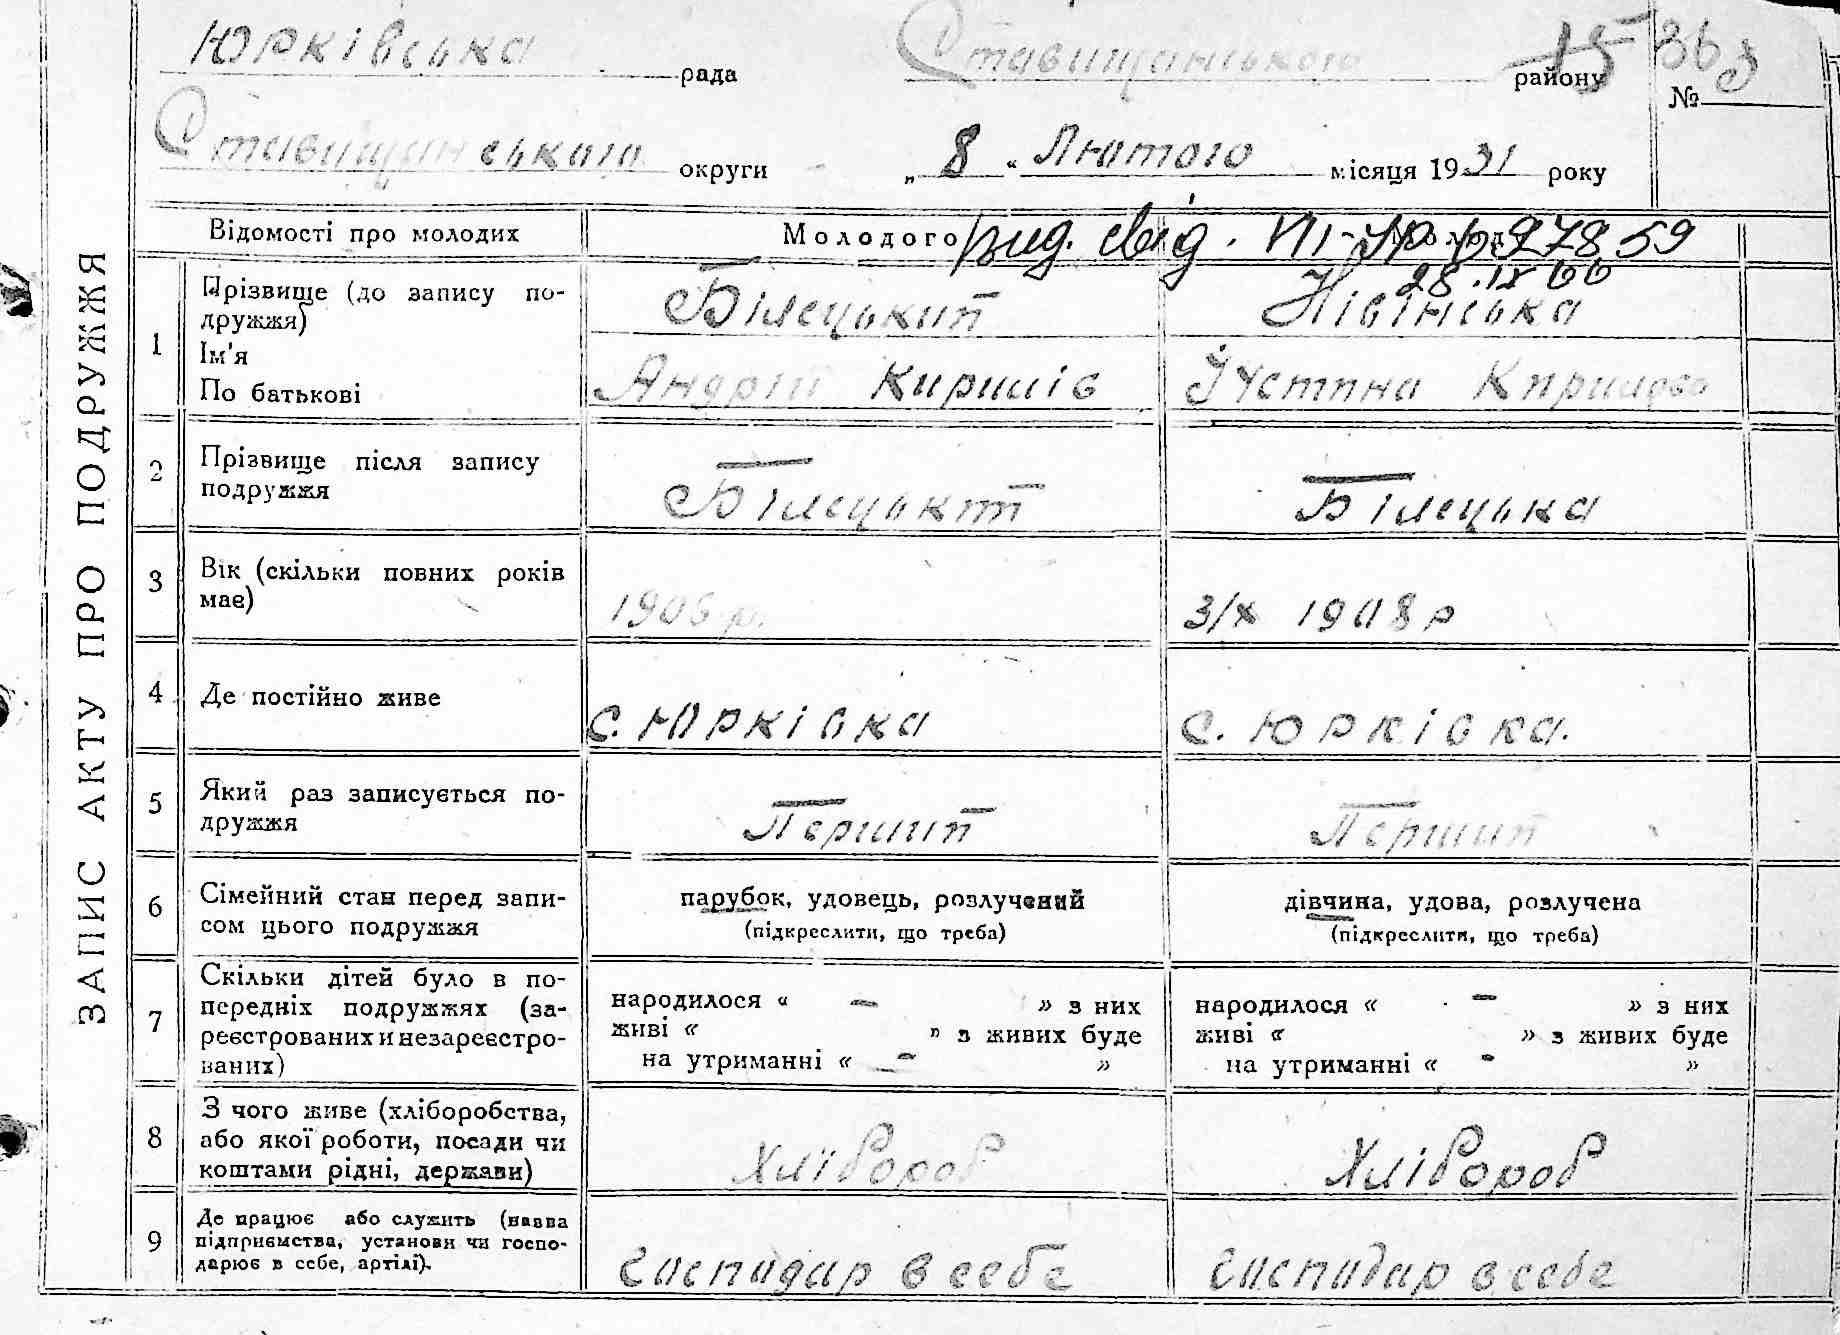 Юрківська рада Ставищанського району
№ 36
Ставищанського округи „ 8 “ Лютого місяця 1931 року
ЗАПИС АКТУ ПРО ПОДРУЖЖЯ
Відомості про молодих Молодого
вид. свід. VІІ-УР 97859
28.IX 66
1 Прізвище (до запису по-
дружжя) Білецький Нівінська
Ім'я
По батькові Андрій Кирилів Іустина Кирилова
2 Прізвище після запису
подружжя Білецький Білецька
3 Вік (скільки повних років
має) 1906 р. 3/х 1908 р
4 Де постійно живе с. Юрківка с. Юрківка.
5 Який раз записується по-
дружжя Перший Перший
6 Сімейний стан перед запи-
сом цього подружжя
парубок, удовець, розлучений дівчина, удова, розлучена
(підкреслити, що треба) (підкреслити, що треба)
7 Скільки дітей було в по-
передніх подружжях (за-
реєстрованих и незареєстро-
ваних)
народилося « — » з них народилося « — » з них
живі « » з живих буде живі « » з живих буде
на утриманні « — » на утриманні « - »
8 З чого живе (хліборобства,
або якої роботи, посади чи
коштами рідні, держави) Хлібороб Хлібороб
9 Де працює або служить (назва
підприємства, установи чи госпо-
дарює в себе, артілі). господар в себе господар в себе